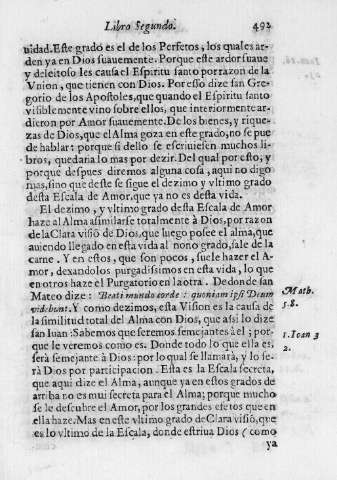 Libro Segundo. 493
uidad. Este grado es el de los Perfetos, los quales ar-
den ya en Dios suauemente. Porque este ardor suaue
y deleitoso les causa el Espiritu santo por razon de la
Vnion, que tienen con Dios. Por esso dize san Gre-
gorio de los Apostoles, que quando el Espiritu santo
visiblemente vino sobre ellos, que interiormente ar-
dieron por Amor suauemente. De los bienes, y rique-
zas de Dios, que el Alma goza en este grado, no se pue
de hablar: porque si dello se escriuiesen muchos li-
bros, quedaria lo mas por dezir. Del qual por esto, y
porque despues diremos alguna cosa, aqui no digo
mas, sino que deste se sigue el dezimo y vltimo grado
desta Escala de Amor, que ya no es desta vida.
El dezimo, y vltimo grado desta Escala de Amor
haze al Alma asimilarse totalmente à Dios, por razon
de la Clara visiõ de Dios, que luego posee el alma, que
auiendo llegado en esta vida al nono grado, sale de la
carne. Y en estos, que son pocos, suele hazer el A-
mor, dexandolos purgadisimos en esta vida, lo que
en otros haze el Purgatorio en la otra. De donde san
Mateo dize: Beati mundo corde: quoniam ipsi Deum
videbunt. Y como dezimos, esta Vision es la causa de
la similitud total del Alma con Dios, que asi lo dize
san Iuan: Sabemos que seremos semejantes à el; por-
que le veremos como es. Donde todo lo que ella es,
serà semejante à Dios: por lo qual se llamarà, y lo se-
rà Dios por participacion. Esta es la Escala secreta,
que aqui dize el Alma, aunque ya en estos grados de
arriba no es mui secreta para el Alma; porque mucho
se le descubre el Amor, por los grandes efetos que en
ella haze. Mas en este vltimo grado de Clara visiõ, que
es lo vltimo de la Escala, donde estriua Dios (como
ya
Math.
5. 8.
1. Ioan 3
2.